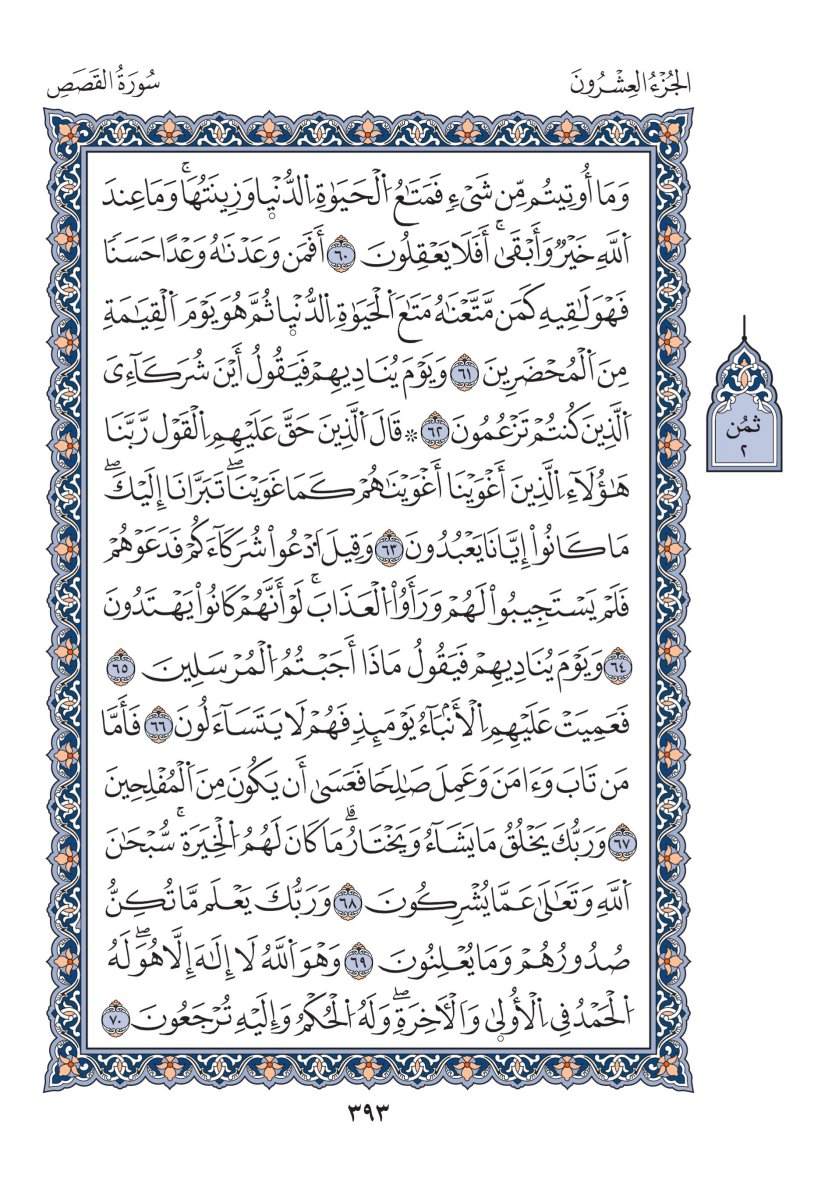 الجُزْءُ العِشْرُونَ
سُورَةُ القَصَصِ
وَمَا أُوتِيتُم مِّن شَيْءٍ فَمَتَٰعُ اُ۬لْحَيَوٰةِ اِ۬لدُّنْي۪ا وَزِينَتُهَاۚ وَمَا عِندَ
اَ۬للَّهِ خَيْرٞ وَأَبْقَىٰۚ أَفَلَا يَعْقِلُونَ ٦٠ أَفَمَن وَعَدْنَٰهُ وَعْدًا حَسَنٗا
فَهْوَ لَٰقِيهِ كَمَن مَّتَّعْنَٰهُ مَتَٰعَ اَ۬لْحَيَوٰةِ اِ۬لدُّنْي۪ا ثُمَّ هُوَ يَوْمَ اَ۬لْقِيَٰمَةِ
مِنَ اَ۬لْمُحْضَرِينَ ٦١ وَيَوْمَ يُنَادِيهِمْ فَيَقُولُ أَيْنَ شُرَكَآءِيَ
اَ۬لَّذِينَ كُنتُمْ تَزْعُمُونَ ٦٢ ۞ قَالَ اَ۬لَّذِينَ حَقَّ عَلَيْهِمِ اِ۬لْقَوْل رَّبَّنَا
هَٰٓؤُلَآءِ اِ۬لَّذِينَ أَغْوَيْنَا أَغْوَيْنَٰهُمْ كَمَا غَوَيْنَاۖ تَبَرَّانَا إِلَيْكَۖ
مَا كَانُواْ إِيَّانَا يَعْبُدُونَ ٦٣ وَقِيلَ اَ۟دْعُواْ شُرَكَآءَكُمْ فَدَعَوْهُمْ
فَلَمْ يَسْتَجِيبُواْ لَهُمْ وَرَأَوُاْ اُ۬لْعَذَابَۚ لَوْ أَنَّهُمْ كَانُواْ يَهْتَدُونَ
٦٤ وَيَوْمَ يُنَادِيهِمْ فَيَقُولُ مَاذَا أَجَبْتُمُ اُ۬لْمُرْسَلِينَ ٦٥
فَعَمِيَتْ عَلَيْهِمِ اِ۬لْأَنۢبَآءُ يَوْمَئِذٖ فَهُمْ لَا يَتَسَآءَلُونَ ٦٦ فَأَمَّا
مَن تَابَ وَءَامَنَ وَعَمِلَ صَٰلِحٗا فَعَسَىٰ أَن يَكُونَ مِنَ اَ۬لْمُفْلِحِينَ
٦٧ وَرَبُّكَ يَخْلُقُ مَا يَشَآءُ وَيَخْتَارُۗ مَا كَانَ لَهُمُ اُ۬لْخِيَرَةُۚ سُبْحَٰنَ
اَ۬للَّهِ وَتَعَٰلَىٰ عَمَّا يُشْرِكُونَ ٦٨ وَرَبُّكَ يَعْلَم مَّا تُكِنُّ
صُدُورُهُمْ وَمَا يُعْلِنُونَ ٦٩ وَهْوَ اَ۬للَّهُ لَا إِلَٰهَ إِلَّا هُوَۖ لَهُ
اُ۬لْحَمْدُ فِي اِ۬لْأُول۪ىٰ وَالْأٓخِرَةِۖ وَلَهُ اُ۬لْحُكْمُ وَإِلَيْهِ تُرْجَعُونَ ٧٠
ثُمُن
٢
٣٩٣